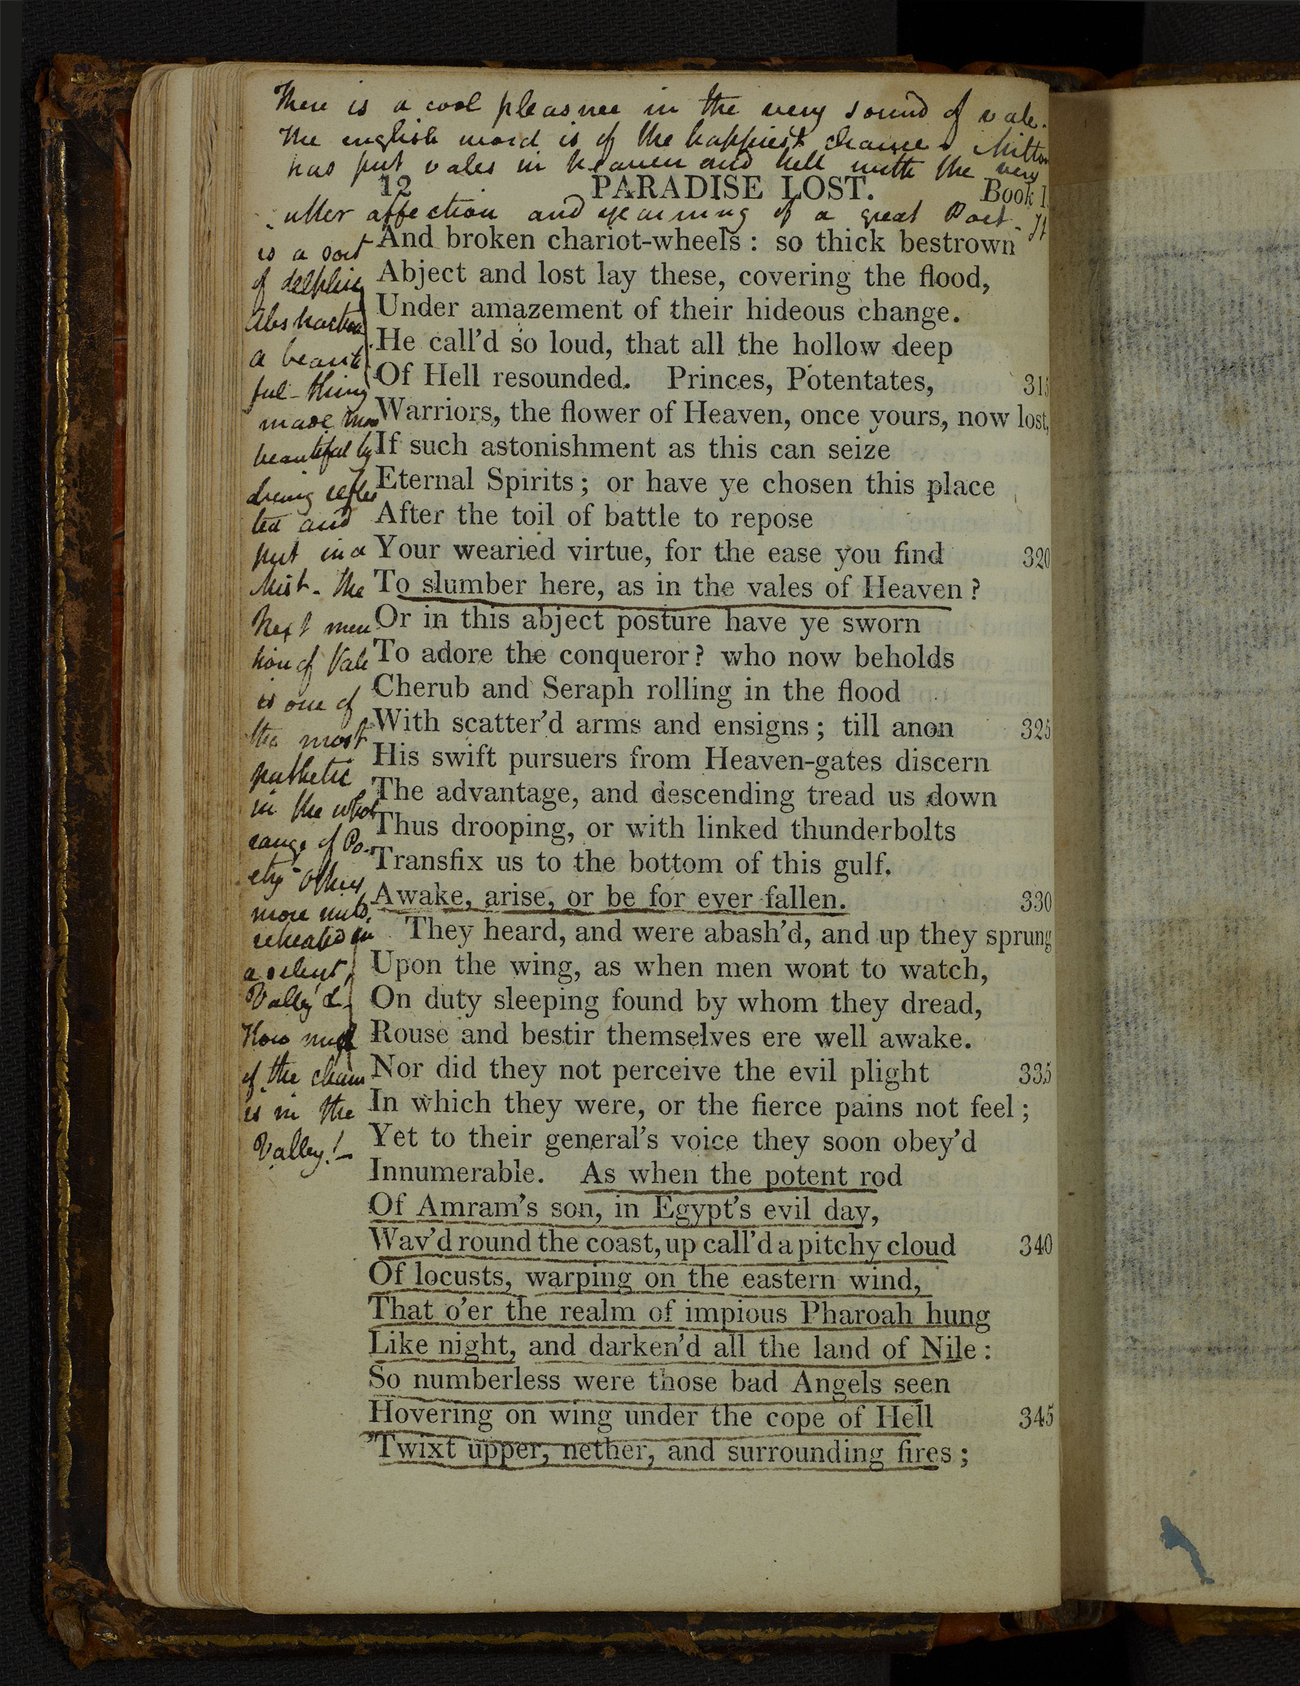 There is a cool pleasure in the very sound of vale.
The english word is of the happiest chance. Milton
has put vales in heaven and hell with the very
12 PARADISE LOST. Book I.
utter affection and yearning of a great Poet. It
is a sort
of delphic
Abstraction
a beauti
ful thing
made more
beautiful by
being reflec
ted and
put in a
Mist. The
Next men
tion of Vale
is one of
the most
pathetic
in the whole
range of Po-
etry. Others
more mild
retreated in
a silent
Valley &c.
How much
of the charm
is in the
Valley!—
And broken chariot-wheels : so thick bestrown
Abject and lost lay these, covering the flood,
Under amazement of their hideous change.
He call'd so loud, that all the hollow deep
Of Hell resounded. Princes, Potentates, 315
Warriors, the flower of Heaven, once yours, now lost,
If such astonishment as this can seize
Eternal Spirits ; or have ye chosen this place
After the toil of battle to repose
Your wearied virtue, for the ease you find 320
To slumber here, as in the vales of Heaven ?
Or in this abject posture have ye sworn
To adore the conqueror ? who now beholds
Cherub and Seraph rolling in the flood
With scatter'd arms and ensigns ; till anon 325
His swift pursuers from Heaven-gates discern
The advantage, and descending tread us down
Thus drooping, or with linked thunderbolts
Transfix us to the bottom of this gulf.
Awake, arise, or be for ever fallen. 330
They heard, and were abash'd, and up they sprung
Upon the wing, as when men wont to watch,
On duty sleeping found by whom they dread,
Rouse and bestir themselves ere well awake.
Nor did they not perceive the evil plight 335
In which they were, or the fierce pains not feel ;
Yet to their general's voice they soon obey'd
Innumerable. As when the potent rod
Of Amram's son, in Egypt's evil day,
Wav'd round the coast, up call'd a pitchy cloud 340
Of locusts, warping on the eastern wind,
That o'er the realm of impious Pharoah hung
Like night, and darken'd all the land of Nile :
So numberless were those bad Angels seen
Hovering on wing under the cope of Hell 345
'Twixt upper, nether, and surrounding fires ;